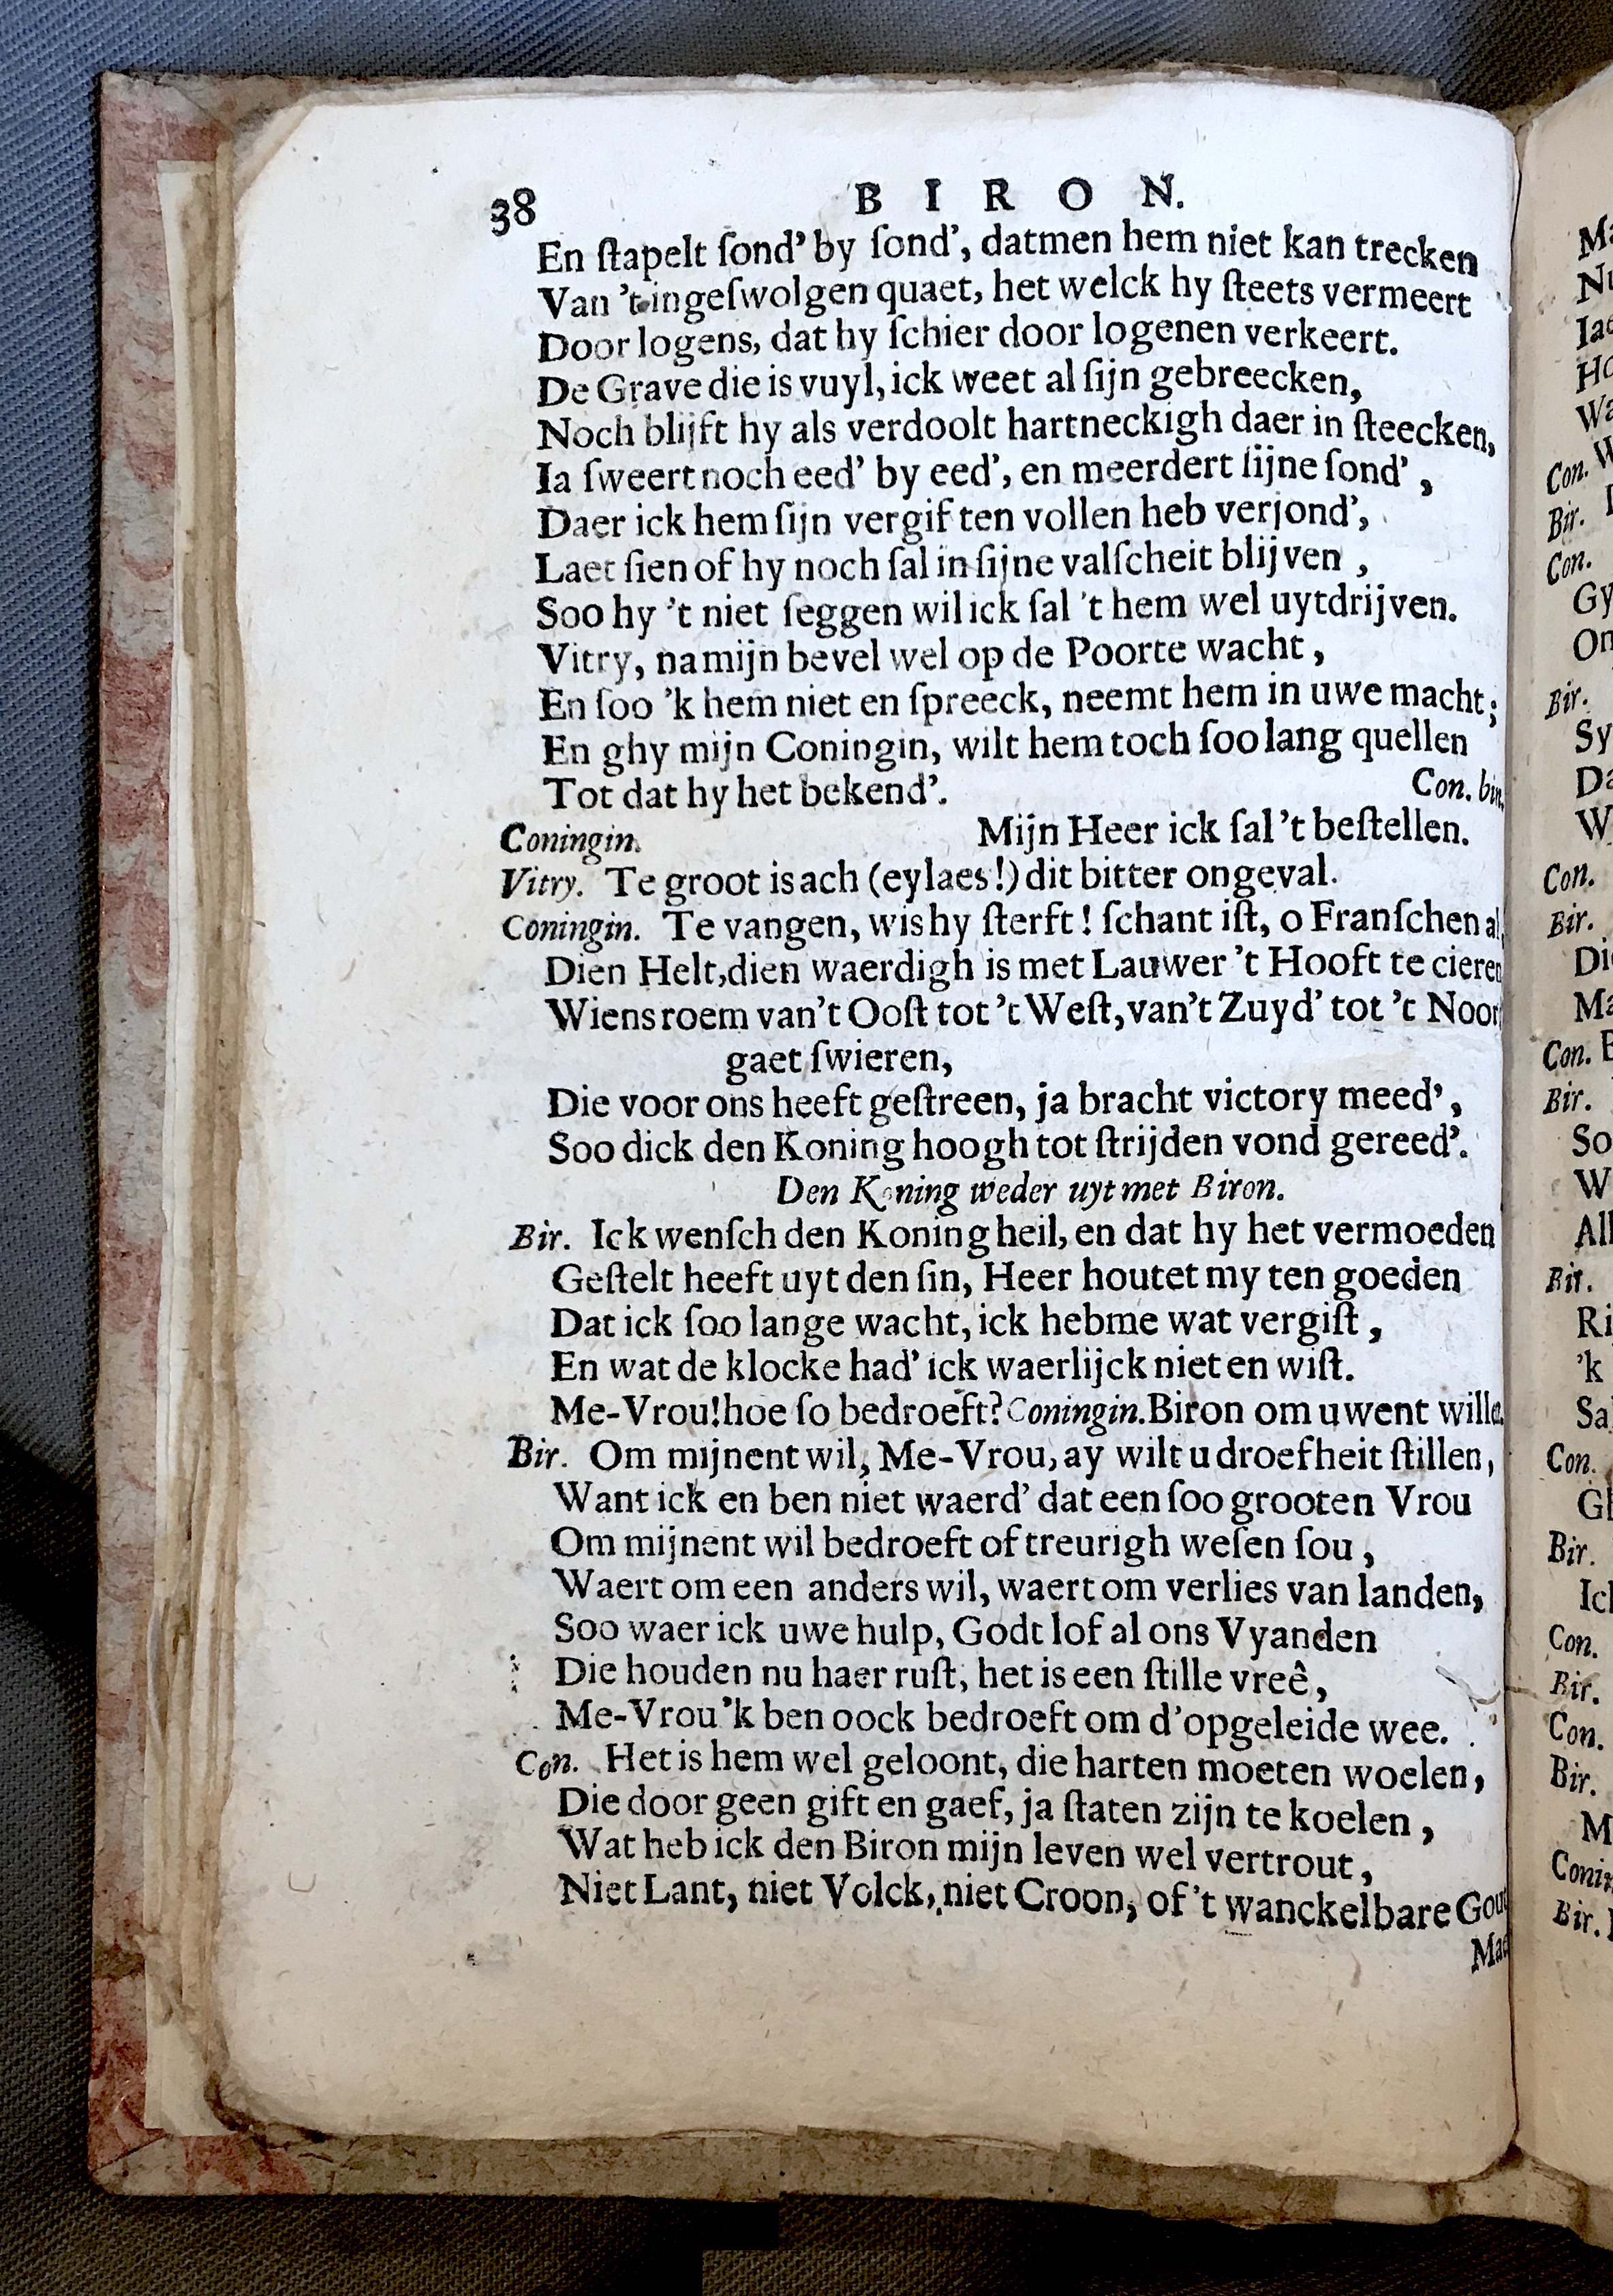 38 B I R O N.
En ſtapelt ſond’ by ſond’, datmen hem niet kan trecken
Van ’t ingeſwolgen quaet, het welck hy ſteets vermeert
Door logens, dat hy ſchier door logenen verkeert.
De Grave die is vuyl, ick weet al ſijn gebreecken,
Noch blijft hy als verdoolt hartneckigh daer in ſteecken,
Ia ſweert noch eed’ by eed’, en meerdert ſijne ſond’,
Daer ick hem ſijn vergif ten vollen heb verjond’,
Laet ſien of hy noch ſal in ſijne valſcheit blijven,
Soo hy ’t niet ſeggen wil ick ſal ’t hem wel uytdrijven.
Vitry, na mijn bevel wel op de Poorte wacht,
En ſoo ’k hem niet en ſpreeck, neemt hem in uwe macht;
En ghy mijn Coningin, wilt hem toch ſoo lang quellen
Tot dat hy het bekend’. Con. bin.
Coningin. Mijn Heer ick ſal ’t beſtellen.
Vitry. Te groot is ach (eylaes!) dit bitter ongeval.
Coningin. Te vangen, wis hy ſterft! ſchant iſt, o Franſchen al,
Dien Helt, dien waerdigh is met Lauwer ’t Hooft te cieren
Wiens roem van’t Ooſt tot ’t Weſt, van’t Zuyd’ tot ’t Noor
gaet ſwieren,
Die voor ons heeft geſtreen, ja bracht victory meed’,
Soo dick den Koning hoogh tot ſtrijden vond gereed’.
Den Koning weder uyt met Biron.
Bir. Ick wenſch den Koning heil, en dat hy het vermoeden
Geſtelt heeft uyt den ſin, Heer houtet my ten goeden
Dat ick ſoo lange wacht, ick hebme wat vergiſt,
En wat de klocke had’ ick waerlijck niet en wiſt.
Me-Vrou! hoe ſo bedroeft? Coningin. Biron om uwent wille.
Bir. Om mijnent wil, Me-Vrou, ay wilt u droefheit ſtillen,
Want ick en ben niet waerd’ dat een ſoo grooten Vrou
Om mijnent wil bedroeft of treurigh weſen ſou,
Waert om een anders wil, waert om verlies van landen,
Soo waer ick uwe hulp, Godt lof al ons Vyanden
Die houden nu haer ruſt, het is een ſtille vreê,
Me-Vrou ’k ben oock bedroeft om d’opgeleide wee.
Con. Het is hem wel geloont, die harten moeten woelen,
Die door geen gift en gaef, ja ſtaten zijn te koelen,
Wat heb ick den Biron mijn leven wel vertrout,
Niet Lant, niet Volck, niet Croon, of ’t wanckelbare Gou
Mae
Con.
Bir.
Con.
Gy
Bir.
Sy
Con.
Bir.
Con.
Bir.
So
W
Bir.
Ri
’k
Con.
Bir.
Con.
Bir.
Con.
Bir.
Bir.